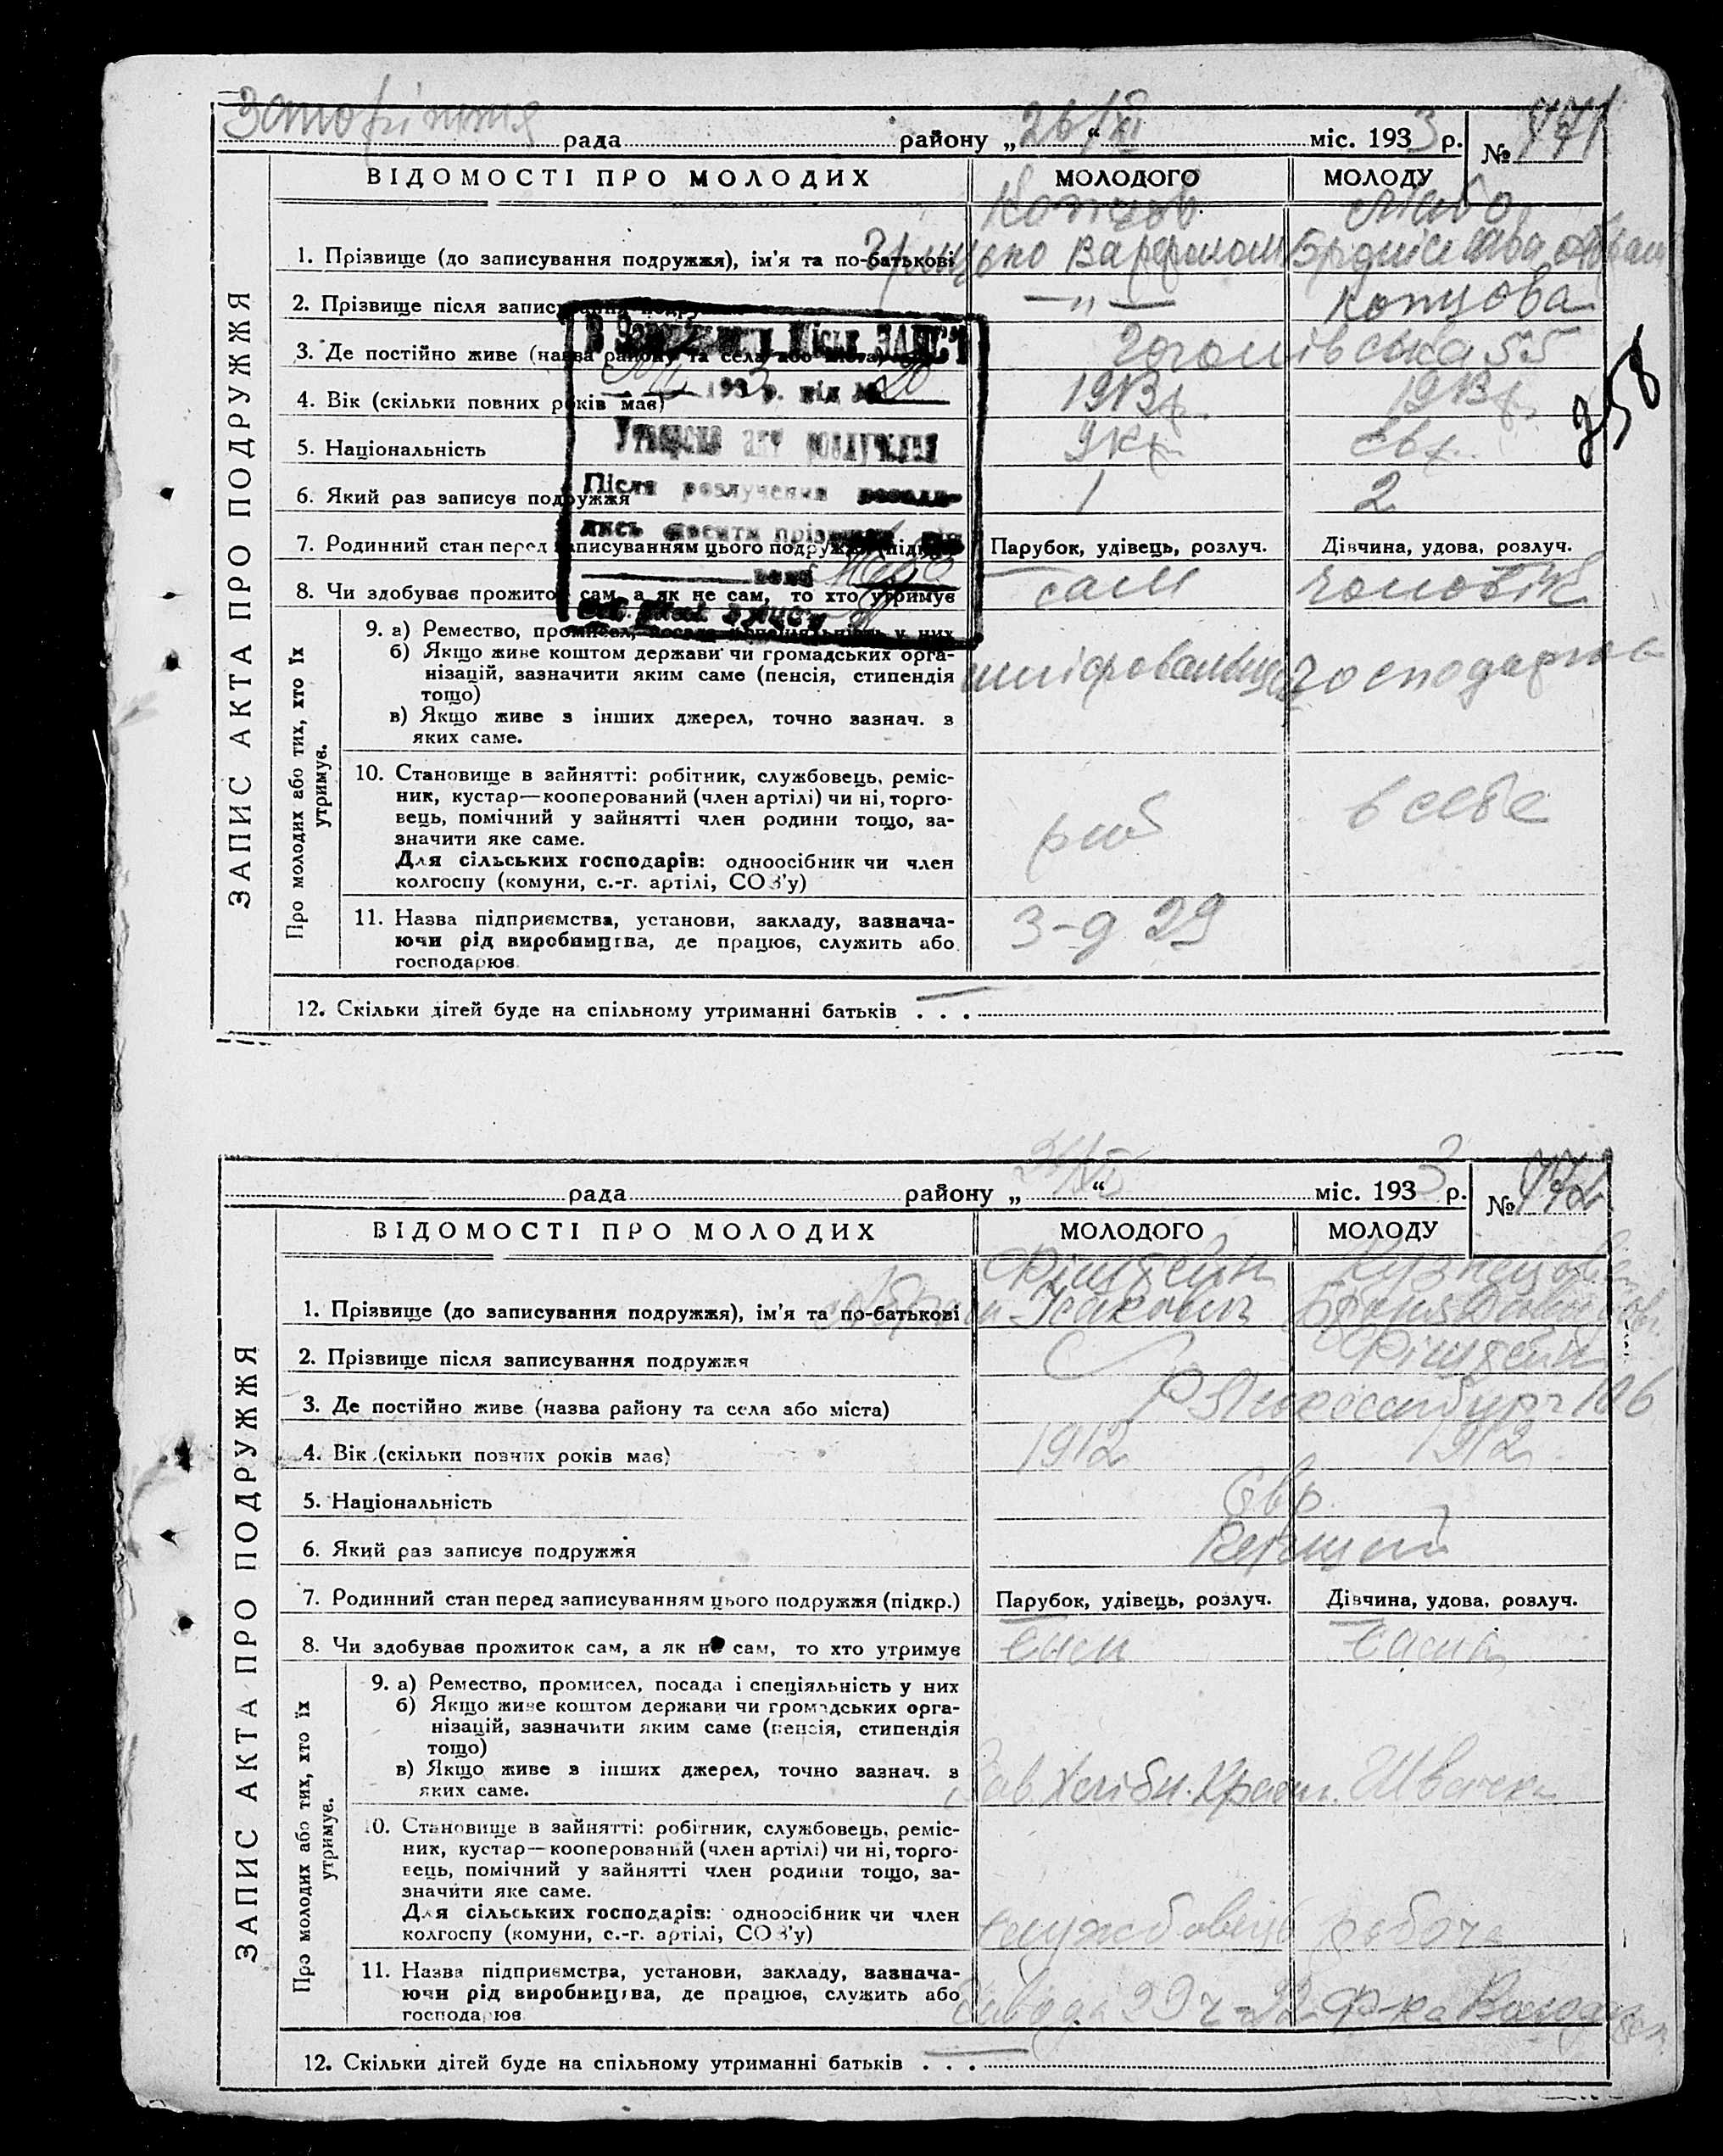 рада району „26/XI“ міс. 1933 р. № 771
ВІДОМОСТІ ПРО МОЛОДИХ МОЛОДОГО МОЛОДУ
ЗАПИС АКТА ПРО ПОДРУЖЖЯ
Копцов
1. Прізвище (до записування подружжя), ім'я та по-батькові
2. Прізвище після записування подружжя — „ — Копцова
3. Де постійно живе (назва району та села або міста) Гоголівська 55
258
4. Вік (скільки повних років має) 1913 р. 1913 р.
5. Національність Укр. Євр.
6. Який раз записує подружжя 1 2
7. Родинний стан перед записуванням цього подружжя (підкр.) Парубок, удівець, розлуч. Дівчина, удова, розлуч.
8. Чи здобуває прожиток сам, а як не сам, то хто утримує сам чоловік
Міськ. ЗАГС'і
193 р. під № 20
Утворено акт розлучення
Після розлучення
носити прізвища
Про молодих або тих, хто їх утримує.
9. а) Ремество, промисел, посада і спеціяльність у них
б) Якщо живе коштом держави чи громадських орга-
нізацій, зазначити яким саме (пенсія, стипендія
тощо)
в) Якщо живе з інших джерел, точно зазнач. з
яких саме.
10. Становище в зайнятті: робітник, службовець, реміс-
ник, кустар—кооперований (член артілі) чи ні, торго-
вець, помічний у зайнятті член родини тощо, за-
значити яке саме.
Для сільських господарів: одноосібник чи член
колгоспу (комуни, с.-г. артілі, СОЗ'у)
роб в себе
11. Назва підприємства, установи, закладу, зазнача-
ючи рід виробництва, де працює, служить або
господарює
з-д 29
12. Скільки дітей буде на спільному утриманні батьків . . . —
рада району „ “ міс. 1933 р. № 772
ВІДОМОСТІ ПРО МОЛОДИХ МОЛОДОГО МОЛОДУ
ЗАПИС АКТА ПРО ПОДРУЖЖЯ
Фінштейн
1. Прізвище (до записування подружжя), ім'я та по-батькові
2. Прізвище після записування подружжя Фінштейн
3. Де постійно живе (назва району та села або міста) Р Люксембург 106
4. Вік (скільки повних років має) 1912 1912
5. Національність Євр.
6. Який раз записує подружжя Перший
7. Родинний стан перед записуванням цього подружжя (підкр.) Парубок, удівець, розлуч. Дівчина, удова, розлуч.
8. Чи здобуває прожиток сам, а як не сам, то хто утримує сам сама
Про молодих або тих, хто їх утримує.
9. а) Ремество, промисел, посада і спеціяльність у них
б) Якщо живе коштом держави чи громадських орга-
нізацій, зазначити яким саме (пенсія, стипендія
тощо)
в) Якщо живе з інших джерел, точно зазнач. з
яких саме.
Зав. Хлібн. Крам. Швачка
10. Становище в зайнятті: робітник, службовець, реміс-
них, кустар—кооперований (член артілі) чи ні, торго-
вець, помічний у зайнятті член родини тощо, за-
значити яке саме.
Для сільських господарів: одноосібник чи член
колгоспу (комуни, с.-г. артілі, СОЗ'у)
службовець робоча
11. Назва підприємства, установи, закладу, зазнача-
ючи рід виробництва, де працює, служить або
господарює
12. Скільки дітей буде на спільному утриманні батьків . . . —